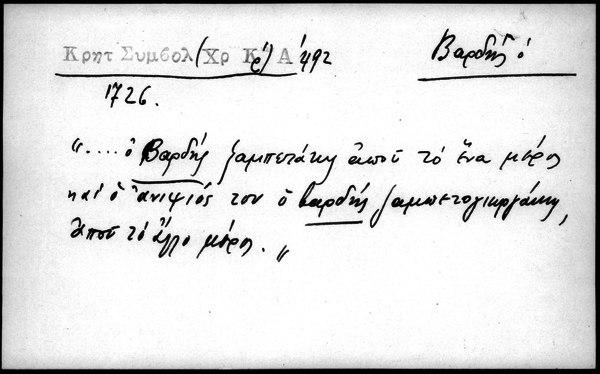 Κρητ Συμβολ (Χρ Κρ) Α' 492 Βαρδῆς ὁ
1726.
".... ὁ Βαρδής Ζαμπετάκις ἀπού τό ἕνα μέρος
καί ὁ ἀνιψιός του ὁ βαρδής
ἀπού τό ἄλλο μέρος. "